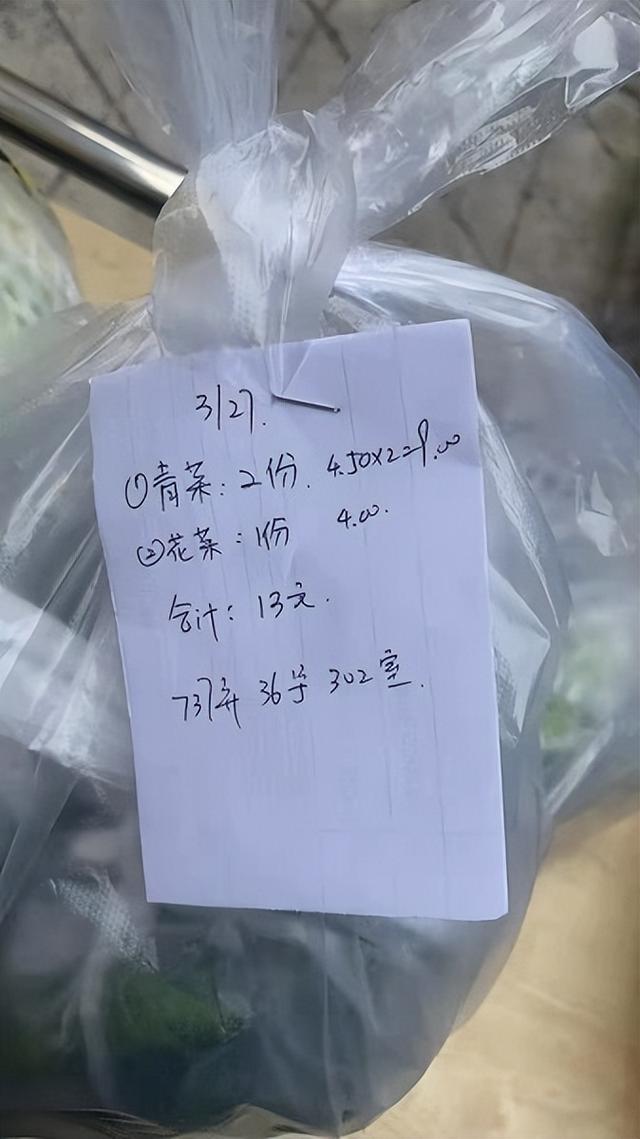 3/27.
①青菜：2份. 4.50×2=9.00
②花菜：1份 4.00.
合计：13元.
737弄 36号 302室.